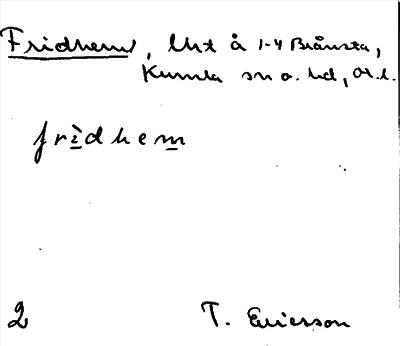 Fridhem, lht å 1-4 Brånsta,
Kumla sn o. hd, Ör. l.
frìdhem
2 T. Ericsson